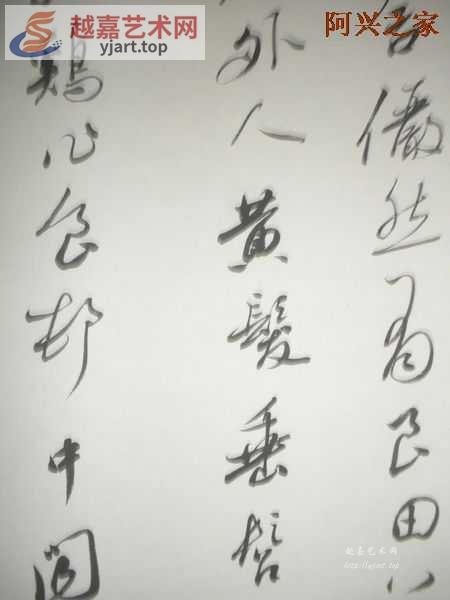 越嘉艺术网
yjart.top
阿兴之家
舍儼然有良田
外人黃髮垂髫
鷄作食邨中聞
越嘉艺术网
http://yjart.top